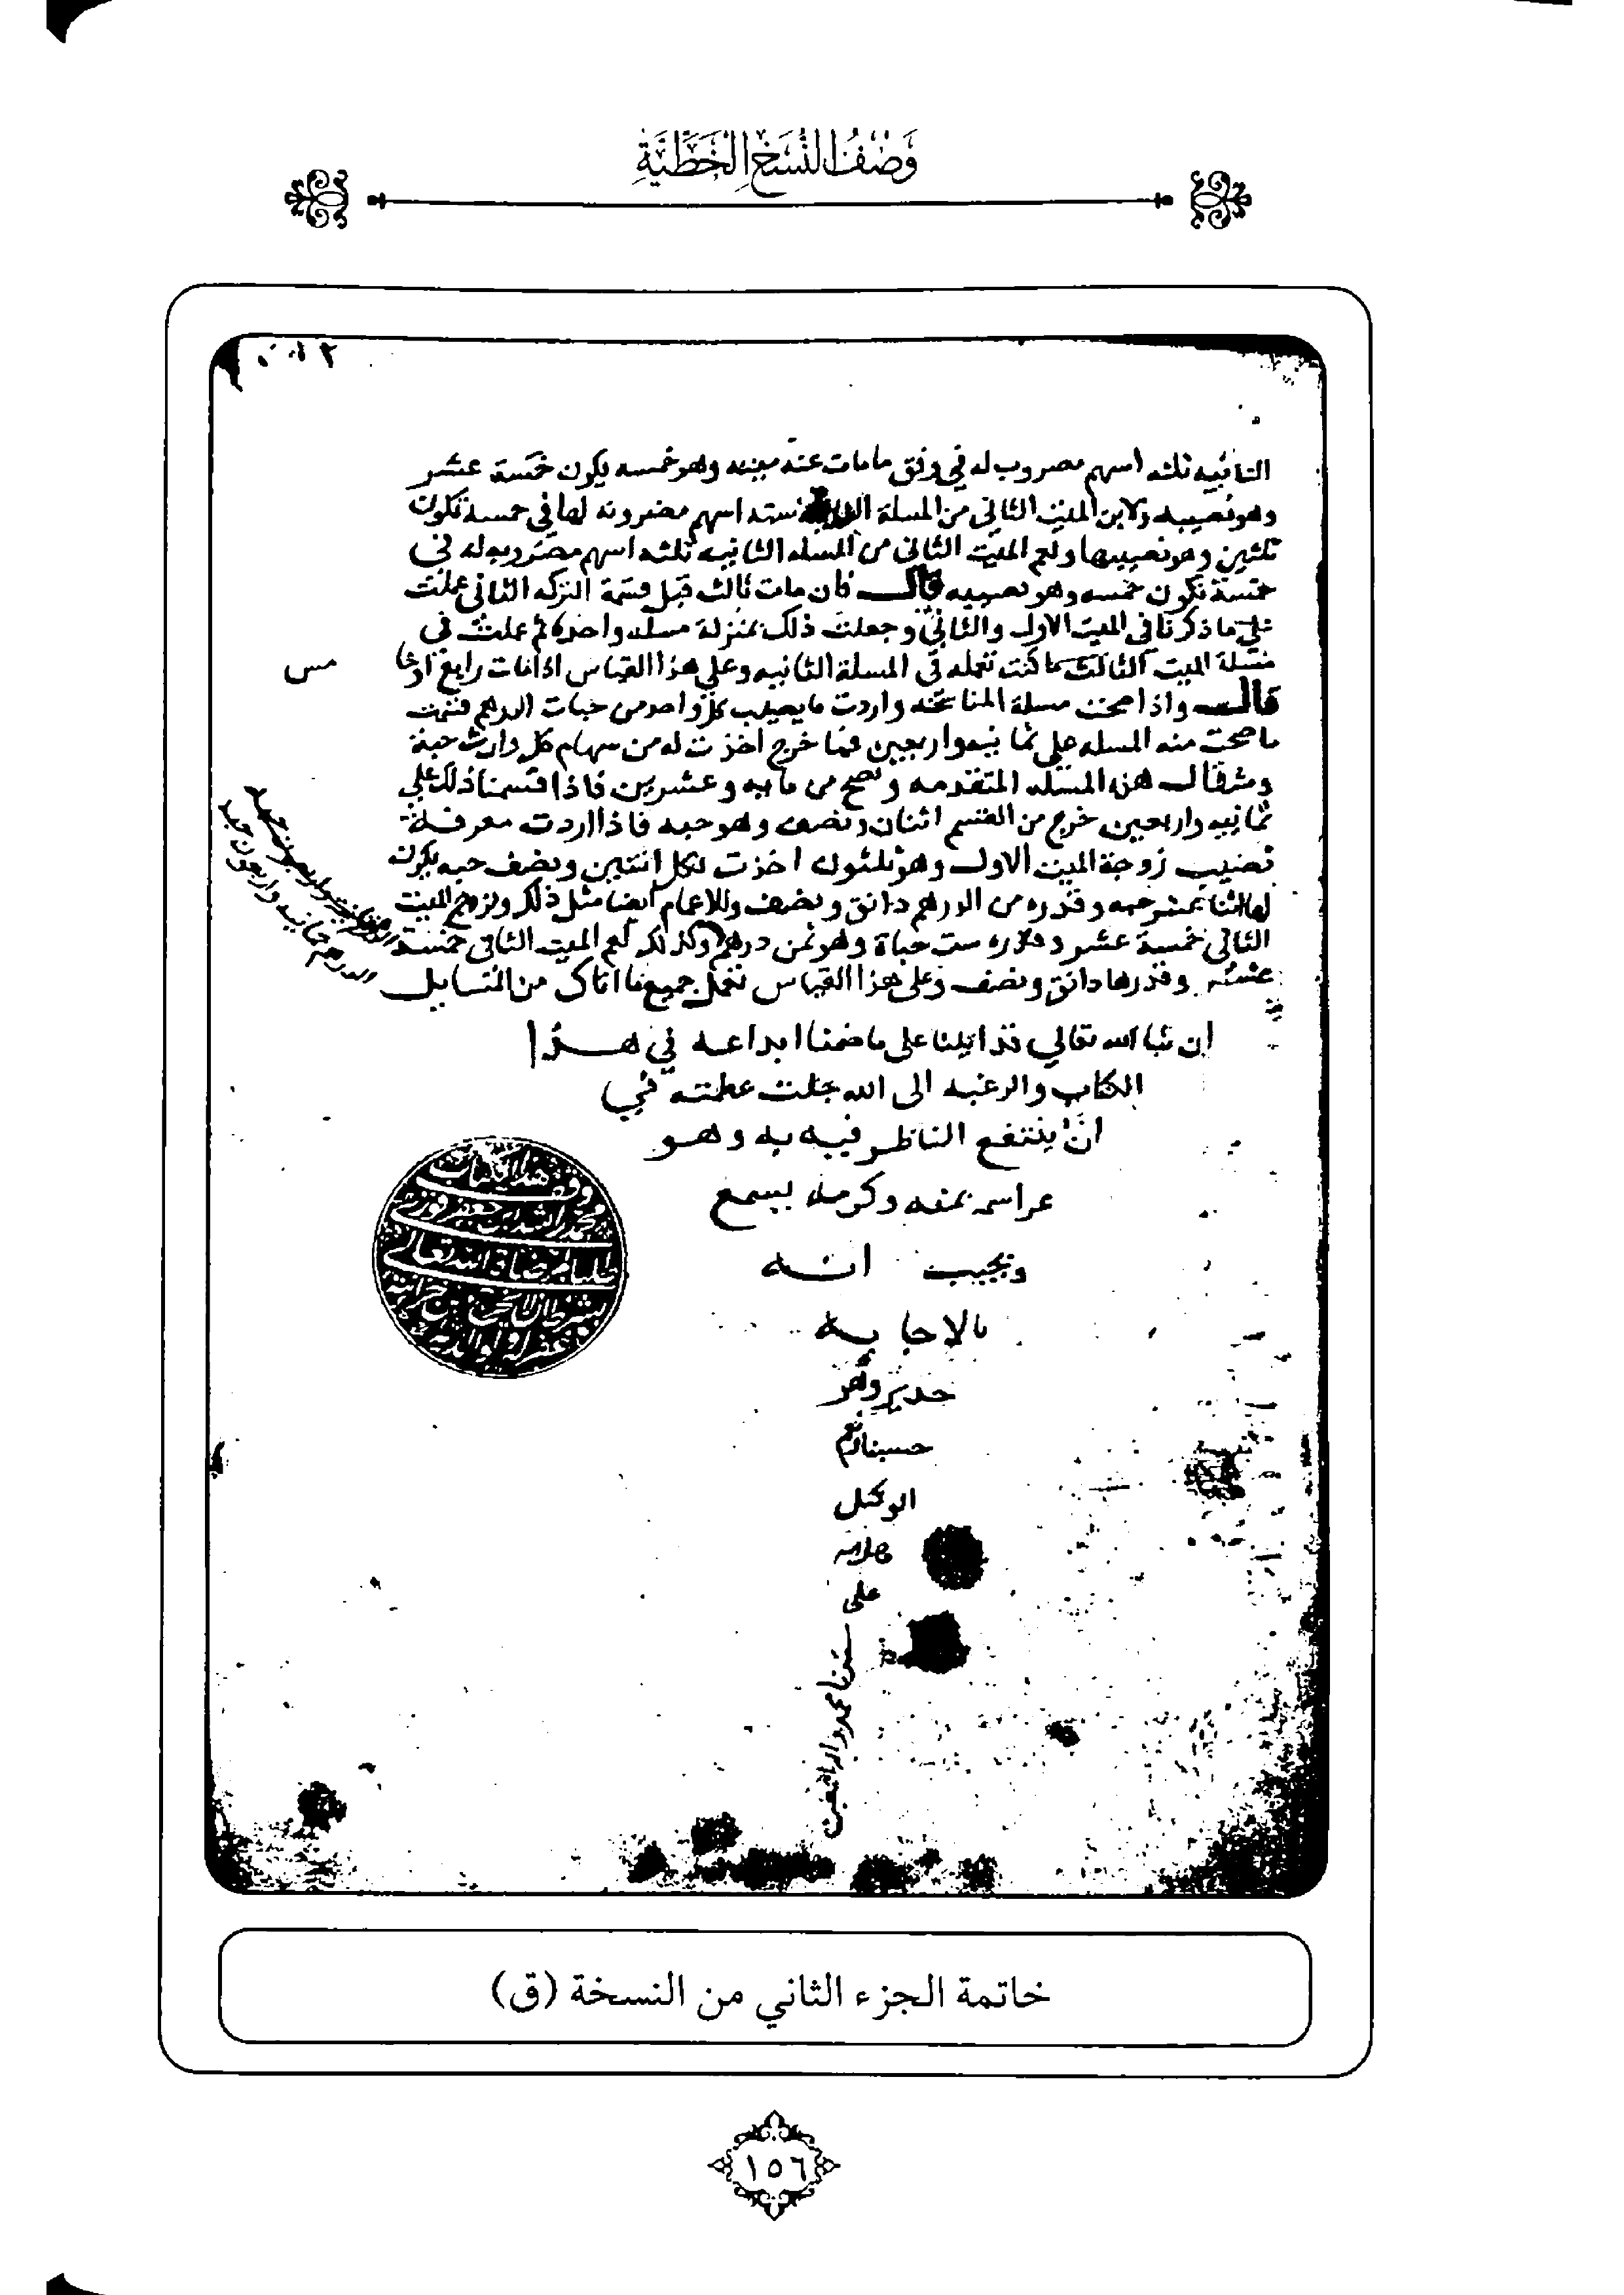 وَصْفُ النُّسَخِ الْخَطِّيَّةِ
الثانيه ثلثه اسهم مضروب له في وفق ما مات عنه مبينه وهو خمسه يكون خمسة عشر
وهو نصيبه ولابن الميت الثاني من المسلة ستة اسهم مضروبه لها في خمسة تكون
ثلثين وهو نصيبها ولعم الميت الثاني من المسله الثانيه ثلثه اسهم مضروبه له في
خمسة تكون خمسه وهو نصيبه قال فان مات ثالث قبل قسمة التركه الثاني عملت
على ما ذكرنا في الميت الاول والثاني وجعلت ذلك بمنزلة مسله واحدة ثم عملت في
مسلة الميت الثالث كما كنت تعمله في المسلة الثانيه وعلى هذا القياس اذا مات رابع
قال واذا صحت مسلة المناسخه واردت ما يصيب كل واحد من حبات الدرهم قسمت
ما صحت منه المسله على ثمانيه واربعين فما خرج اخذت له من سهام كل وارث حبة
ومثر قال هذه المسله المتقدمه وتصح من مايه وعشرين فاذا قسمنا ذلك على
ثمانيه واربعين خرج من القسم اثنان ونصف وهو حبه فاذا اردت معرفة
نصيب زوجة الميت الاول وهو ثلثون اخذت لكل اثنتين ونصف حبه يكون
لها اثنا عشر حبه وقدره من الدرهم دانق ونصف وللاعمام ايضا مثل ذلك ولزوج الميت
الثاني خمسة عشر وقدره ست حباة وهو ثمن درهم وكذلك لعم الميت الثاني خمسة
وقدرها دانق ونصف وعلى هذا القياس تعمل جميع ما اتاك من المسايل
ان شا الله تعالى قد اتينا على ما ضمنا ابداعه في هذا
الكتاب والرغبه الى الله جلت عظمته في
ان ينتفع الناظر فيه به وهو
عز اسمه بمنه وكرمه يسمع
ويجيب انه
بالاجابه
جدير وهو
حسبنا ونعم
الوكيل
على
سيدنا محمد واله
الدرهم ثمانيه واربعون حبه
وقف هذا الكتاب
طلبا لمرضاة الله تعالى
خاتمة الجزء الثاني من النسخة (ق)
١٥٦